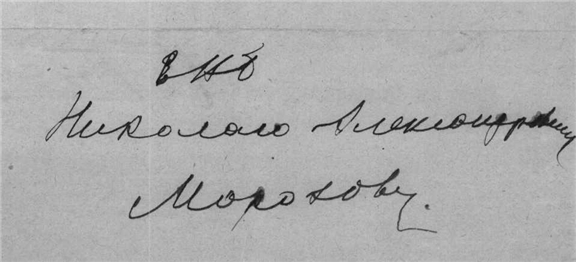 ЕНБ
Николаю Александровичу
Морозову.